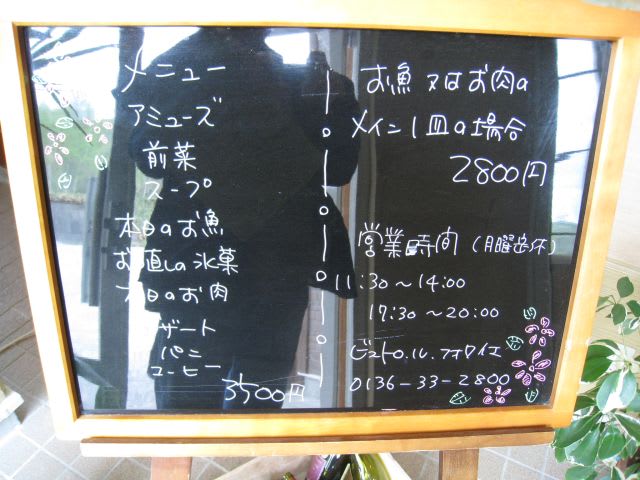 メニュー
アミューズ
前菜
スープ
本日のお魚
お直しの氷菓
本日のお肉
デザート
パン
コーヒー
3500円
お魚又はお肉の
メイン1皿の場合
2800円
営業時間（月曜定休）
11:30～14:00
17:30～20:00
ビストロ.ル.フォワイエ
0136-33-2800